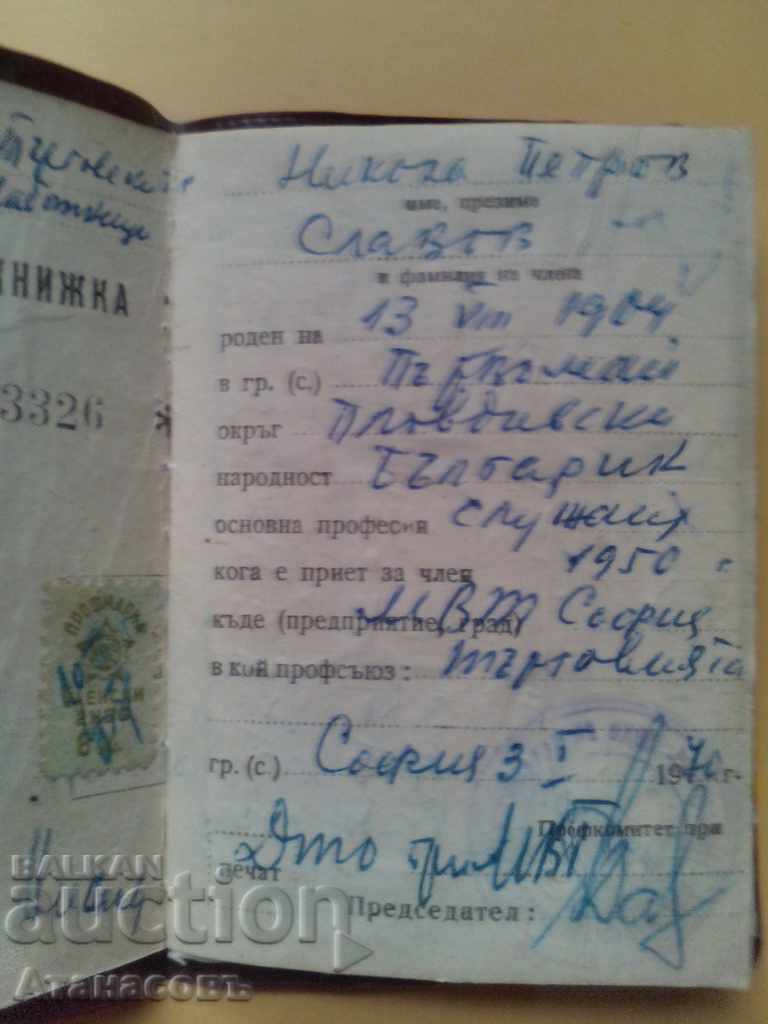 КНИЖКА
3326
Никола Петров
име, презиме
Славов
и фамилия на члена
роден на 13 VIII 1904
в гр. (с.) Първомай
окръг Пловдивски
народност Българин
основна професия служащ
кога е приет за член 1950 г.
къде (предприятие, град) МВТ София
в кой профсъюз: търговията
гр. (с.) София 3 I 1970 г.
Профкомитет при
печат при МВТ
Председател:
BALKAN
auction
Атанасовъ